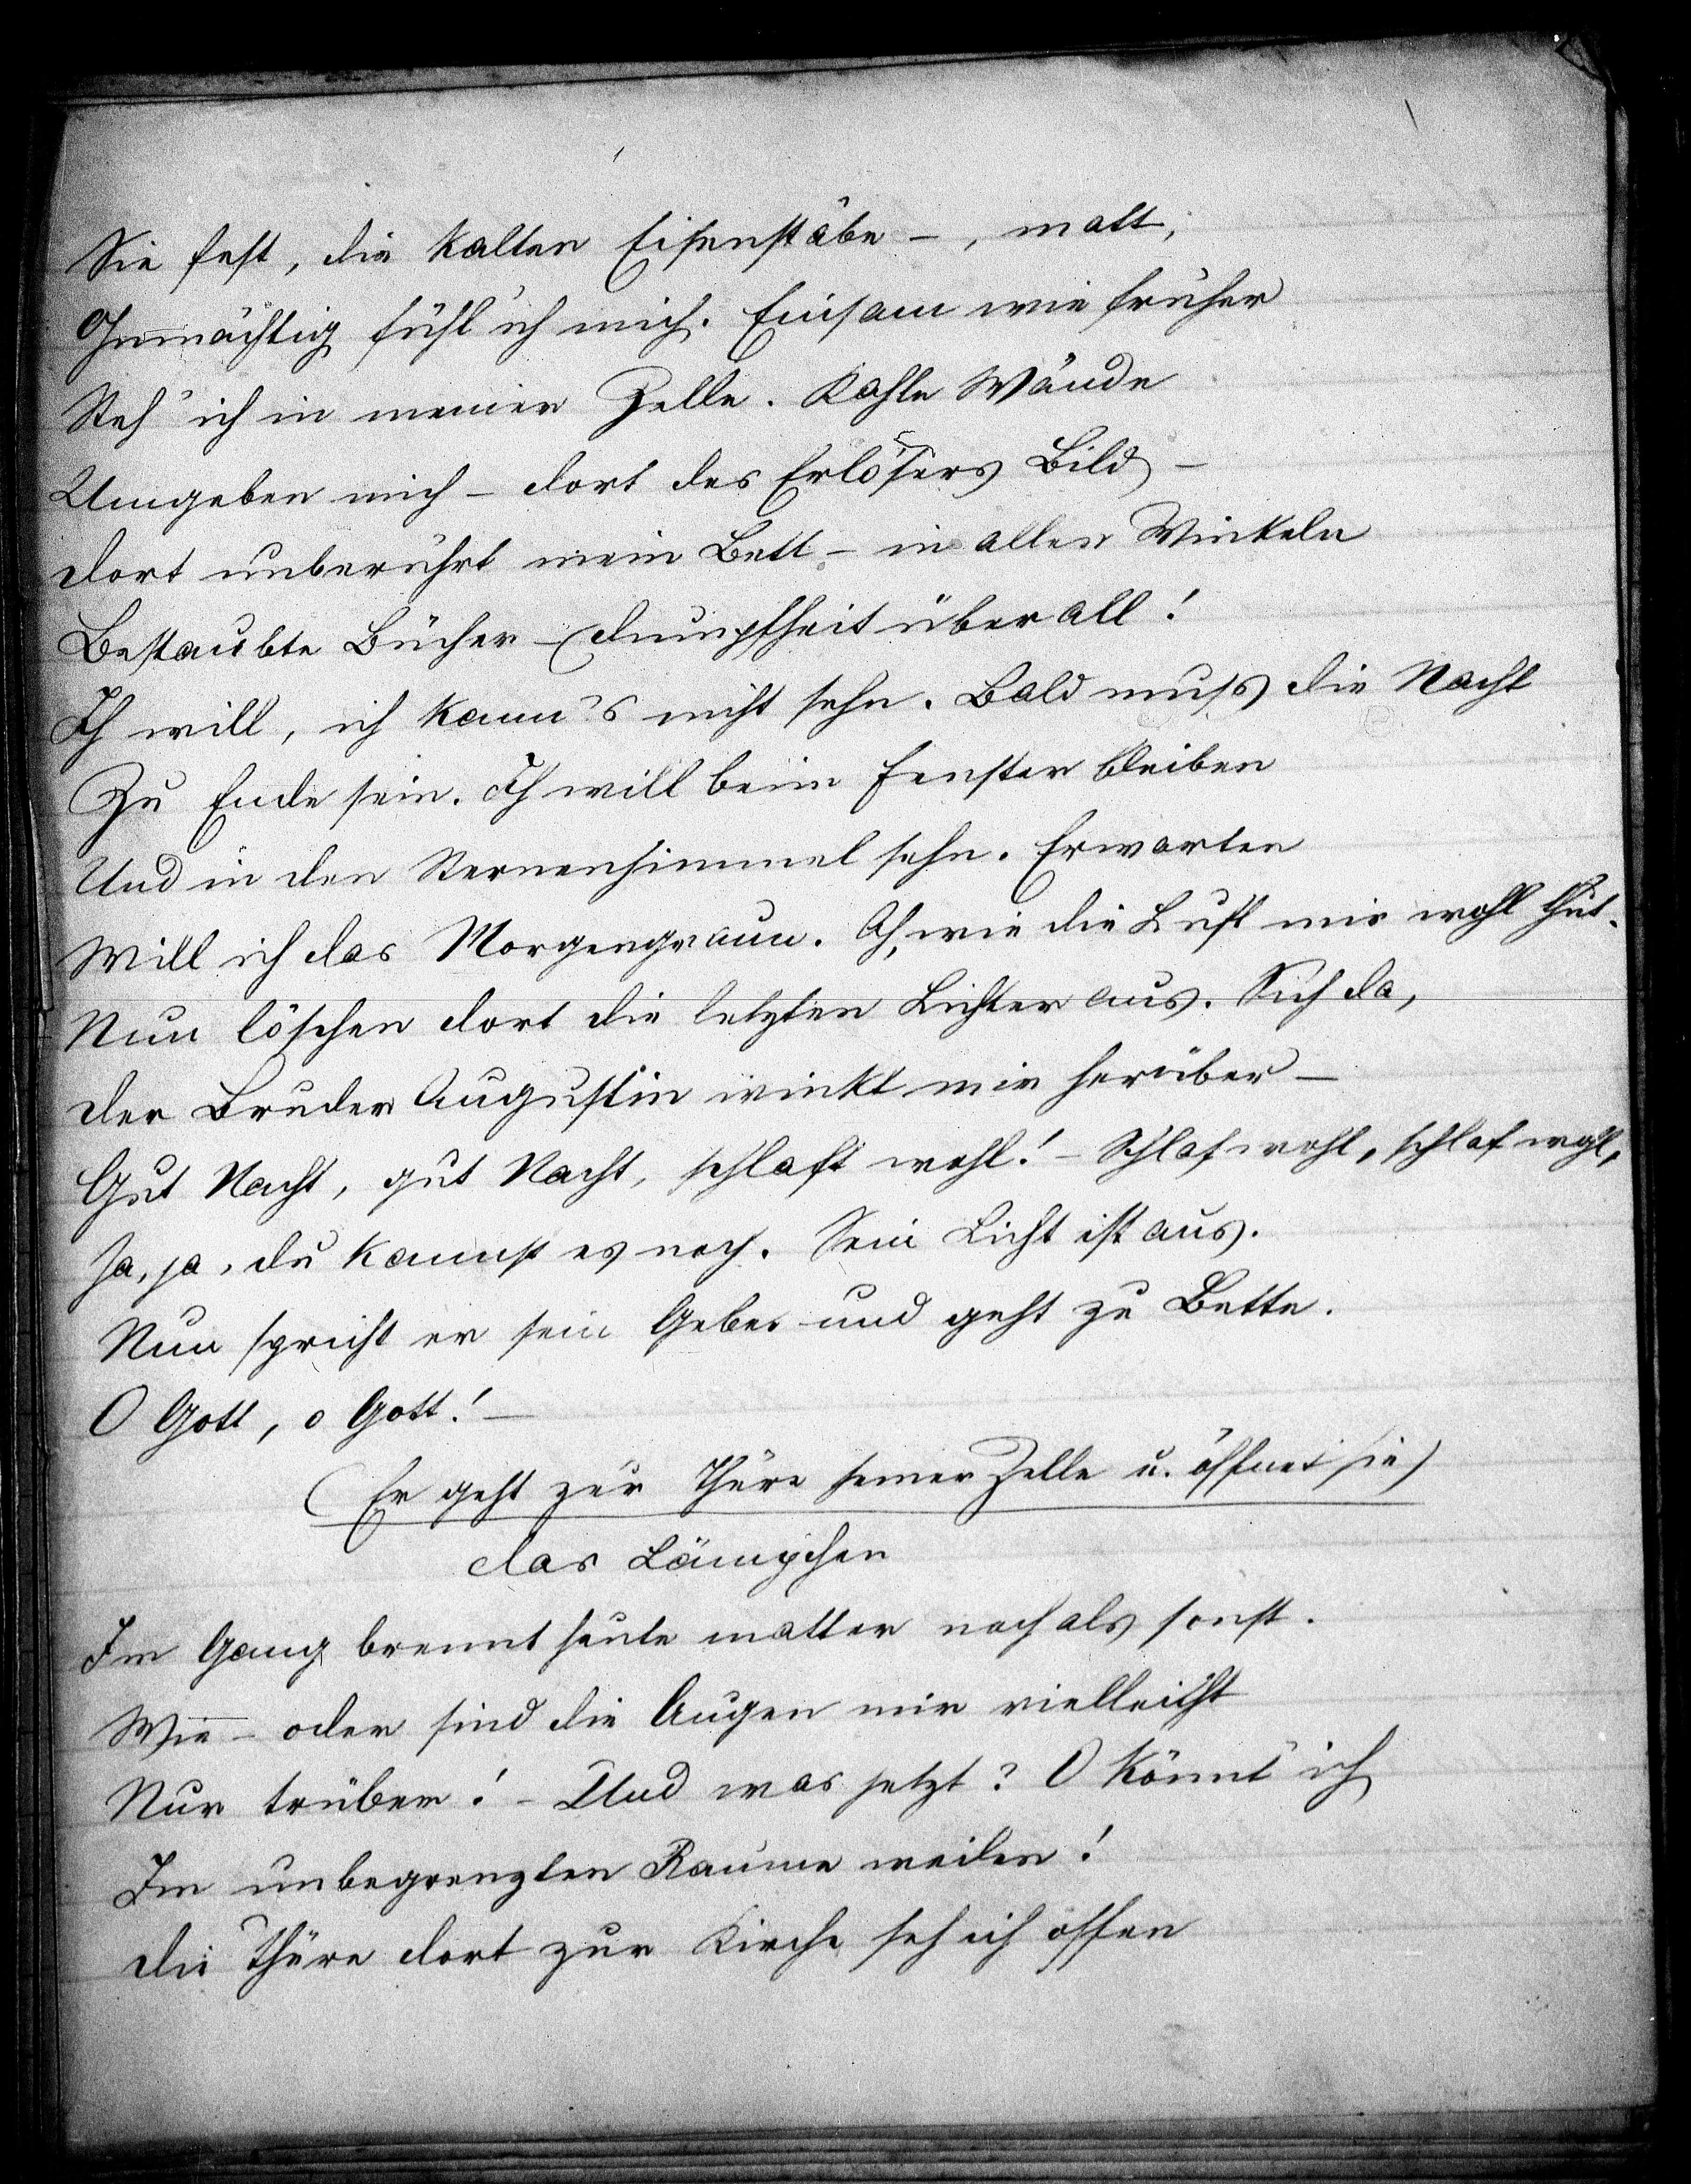 Sie fest, die kalten Eisenstäbe –, matt,
Ohnmächtig fühl ich mich. Einsam wie früher
Steh' ich in meiner Zelle. Kahle Wände
Umgeben mich – dort des Erlösers Bild –
dort unberührt mein Bett – in allen Winkeln
Bestaubte Bücher – dumpfheit überall!
Ich will, ich kann's nicht sehn. Bald muss die Nacht
Zu Ende sein. Ich will beim Fenster bleiben
Und in den Sternenhimmel sehn. Erwarten
Will ich das Morgengraun. Ah, wie die Luft mir wohl thut.
Nun löschen dort die letzten Lichter aus. Sieh da,
der Bruder Augustin winkt mir herüber –
Gut Nacht, gut Nacht, schlaft wohl! – Schlaf wohl, schlaf wohl,
Ja, ja, du kannst es noch. Sein Licht ist aus.
Nun spricht er sein Gebet und geht zu Bette.
O Gott, o Gott! –
(Er geht zur Thüre seiner Zelle u. öffnet sie)
das Lämpchen
Im Gang brennt heute matter noch als sonst.
Wie – oder sind die Augen mir vielleicht
Nur trüber! – Und was jetzt? O könnt' ich
Im unbegrenzten Raume weilen!
die Thüre dort zur Kirche seh ich offen